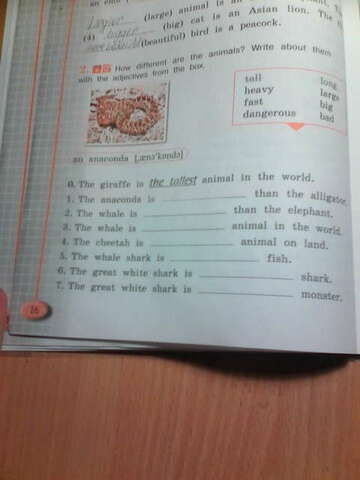 larger (large) animal is an
(4) bigger (big) cat is an Asian lion. The
(beautiful) bird is a peacock.
2. How different are the animals? Write about them
with the adjectives from the box.
tall long
heavy large
fast big
dangerous bad
an anaconda [,ænə'kɒndə]
0. The giraffe is the tallest animal in the world.
1. The anaconda is ____________ than the alligator.
2. The whale is ____________ than the elephant.
3. The whale is ____________ animal in the world.
4. The cheetah is ____________ animal on land.
5. The whale shark is ____________ fish.
6. The great white shark is ____________ shark.
7. The great white shark is ____________ monster.
16